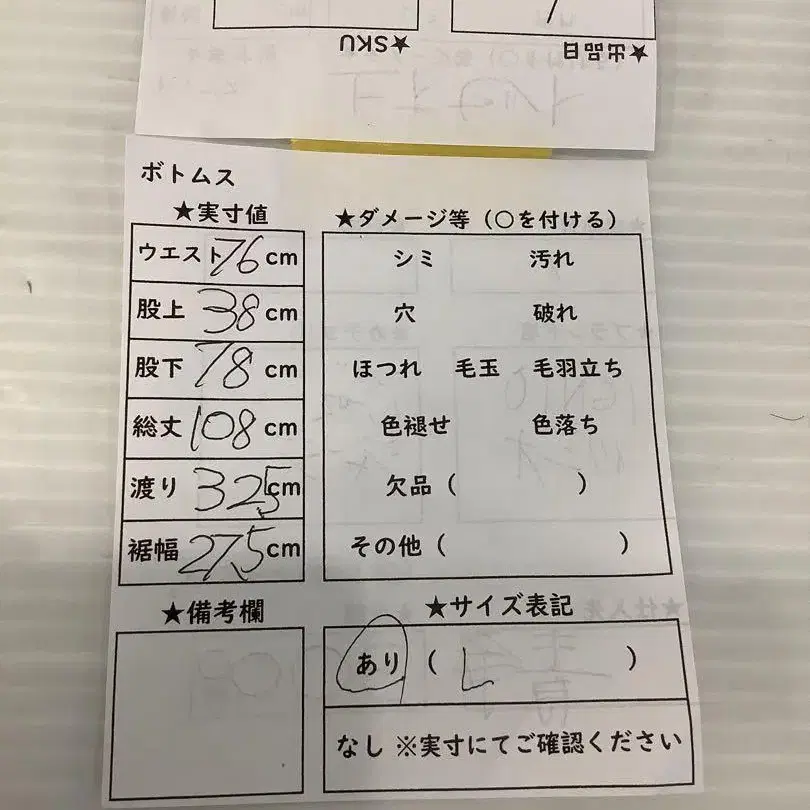 ★SKU
★出品日
ボトムス
★実寸値
ウエスト 76 cm
股上 38 cm
股下 78 cm
総丈 108 cm
渡り 32.5 cm
裾幅 27.5 cm
★ダメージ等（○を付ける）
シミ 汚れ
穴 破れ
ほつれ 毛玉 毛羽立ち
色褪せ 色落ち
欠品（ ）
その他（ ）
★備考欄
★サイズ表記
あり（ L ）
なし ※実寸にてご確認ください